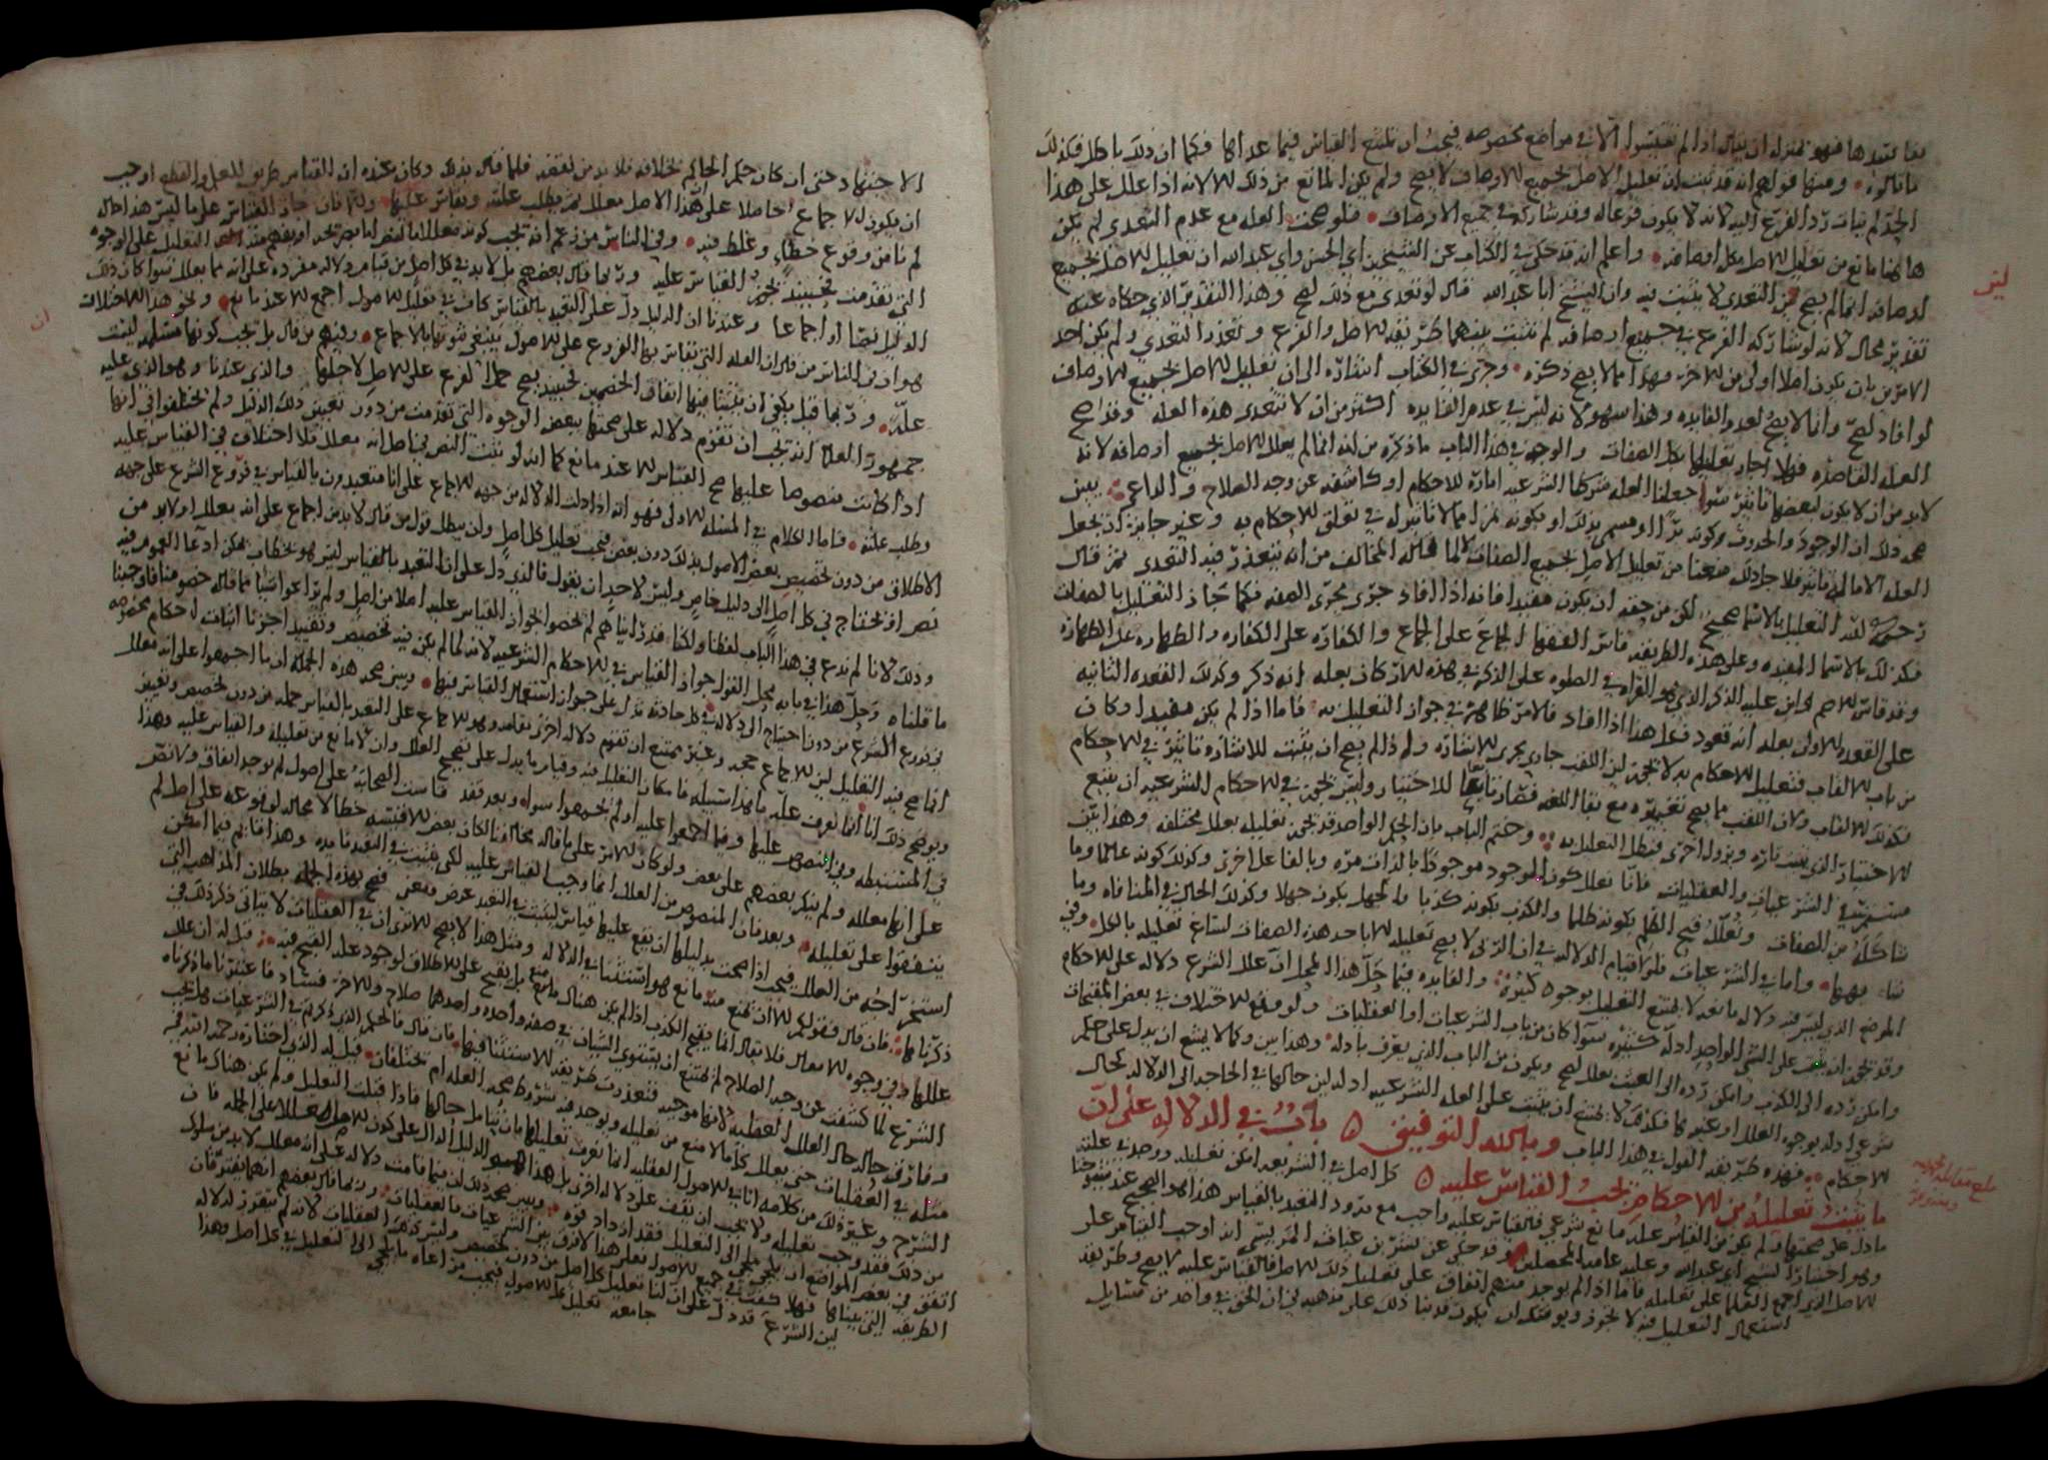 بما عداها فهو بمنزلة ان يقال اذا لم تقيسوا الا في مواضع مخصوصه فيجب ان يمتنع القياس فيما عداها فكما ان ذلك باطل فكذلك
ما قالوه ومنها قولهم انه قد ثبت ان تعليل الاصل بجميع الاوصاف لا يصح ولم يكن المانع من ذلك الا لانه اذا علل على هذا
الحد لم يتات رد الفرع اليه لانه لا يكون فرعا له وقد شاركه في جميع الاوصاف فلو صحت العله مع عدم التعدي لم يكن
هاهنا مانع من تعليل الاصل بكل اوصافه واعلم انه قد حكى في الكتاب عن الشيخين ابي الحسن وابي عبد الله ان تعليل الاصل بجميع
اوصافه انما لم يصح لان التعدي لا يثبت فيه وان الشيخ ابا عبد الله قال لو تعدى مع ذلك لصح وهذا التقدير الذي حكاه عنه
تقدير محال لانه لو شاركه الفرع في جميع اوصافه لم تثبت بينهما طريقه الاصل والفرع وتعذر التعدي ولم يكن احد
الامرين بان يكون اصلا اولى من الاخر وهذا مما لا يصح ذكره وجرى في الكتاب اشاره الى ان تعليل الاصل بجميع الاوصاف
لو افاد لصح وانما لا يصح لعدم الفايده وهذا سهو لانه ليس في عدم الفايده اكثر من ان لا تتعدى هذه العله وقد صح
العله القاصره فهلا جاز تعليلها بكل الصفات والوجه في هذا الباب ما ذكره من انه انما لم يعلل الاصل بجميع اوصافه لانه
لا بد من ان لا يكون لبعضها تاثير سوا جعلنا العله متى كانت شرعيه امارة للاحكام او كاشفه عن وجه الصلاح والداعي يبين
صحه ذلك ان الوجود والحدوث وكونه برا او مسمى بذلك او بكونه تمرا مما لا تاثير له في تعلق الاحكام به وغير جايز ان يجعل
العله الا ما له تاثير فلاجل ذلك منعنا من تعليل الاصل بجميع الصفات لا لما قاله المخالف من انه يتعذر فيه التعدي ثم قال
رحمه الله التعليل بالاسما صحيح لكن من حقه ان يكون مفيدا فانه اذا افاد جرى مجرى الصفه فكما جاز التعليل بالصفات
فكذلك بالاسما المفيده وعلى هذه الطريقه قاس الفقها الجماع على الجماع والكفاره على الكفاره والطهاره على الطهاره
وقد قاس الاصم وابن عليه الذكر الذي هو القراه في الصلوه على الذكر في هذه الاركان بعله انه ذكر وكذلك القعده الثانيه
على القعده الاولى بعله انه قعود فعلى هذا اذا افاد فالامر ظاهر في جواز التعليل به فاما اذا لم يكن مفيدا وكان
من باب الالقاب فتعليل الاحكام به لا يجوز لان اللقب جار مجرى الاشاره ولم لم يصح ان يثبت للاشاره تاثير في الاحكام
فكذلك الالقاب ولان اللقب مما يصح تغييره مع بقا اللغه فصار تابعا للاختيار وليس يجوز في الاحكام الشرعيه ان يتبع
الاختيار الذي يثبت تاره ويزول اخرى فبطل التعليل به وختم الباب بان الحكم الواحد قد يجوز تعليله بعلل مختلفه وهذا بين
مستمر في الشرعيات والعقليات فانا نعلل كون الموجود موجودا بالذات مره وبالفاعل اخرى وكذلك كونه عالما وما
شاكله من الصفات ونعلل قبح الظلم بكونه ظلما والكذب بكونه كذبا والجهل بكونه جهلا وكذلك الحال في المنافاه وما
شابهها واما في الشرعيات فلولا قيام الدلاله في ان الربى لا يصح تعليله الا باحد هذه الصفات لساغ تعليله بالكل وفي
الموضع الذي ليس فيه دلاله مانعه لا يمتنع التعليل بوجوه كثيره والفايده فيما حل هذا المحل ان علل الشرع دلاله على الاحكام
وقد يجوز ان يثبت على الشي الواحد ادله كثيره سوا كان من باب الشرعيات او العقليات ولو وقع الاختلاف في بعض المقبحات
وامكن رده الى الكذب وامكن رده الى العبث بعلل لصح ويكون من الباب الذي يعرف بادله وهذا بين وكما لا يمتنع ان يدل على حكم
شرعي ادله بوجوه العلل او غيرها فكذلك لا يمتنع ان يثبت على العله الشرعيه ادله لان حالها في الحاجه الى الدلاله كحال
الاحكام فهذه طريقه القول في هذا الباب وبالله التوفيق باب في الدلاله على ان
ما يثبت تعليله من الاحكام يجب القياس عليه كل اصل في الشريعه امكن تعليله ووجد في علته
ما دل على صحتها ولم يكن من القياس عليه مانع شرعي فالقياس عليه واجب مع ورود التعبد بالقياس هذا هو الصحيح عند شيوخنا
وهو اختيار الشيخ ابي عبد الله وعليه عامه المحصلين وقد حكى عن بشر بن غياث المريسي انه اوجب القياس على
الاصل الذي اجمع العلما على تعليله فاما اذا لم يوجد منهم اتفاق على تعليل ذلك الاصل فالقياس عليه لا يصح وطريقه
استعمال التعليل فيه لا يجوز ويوشك ان يكون قد بنا ذلك على مذهبه في ان الحق في واحد من مسايل
ليس
بلغ مقابله
الاجتهاد حتى ان كان حكم الحاكم بخلافه فلا بد من نقضه فلما قال بذلك وكان عنده ان القياس طريق للعلم والقطع اوجب
ان يكون الاجماع حاصلا على هذا الاصل معلل ثم يطلب علته ويقاس عليها
لم نامن وقوع خطاء وغلط فيه وفي الناس من زعم انه يجب كونه معللا
التي تقدمت فحينئذ يجوز القياس عليه وربما قال بعضهم بل لا بد في كل اصل من قيام دلاله مفرده على انه مما يعلل سوا كان ذلك
الدليل نصا او اجماعا وعندنا ان الدليل دل على التعبد بالقياس كاف في تعليل الاصول اجمع الا عند مانع
هو ان في الناس من قال ان العله التي تقاس بها الفروع على الاصول ينبغي ثبوتها بالاجماع ومنهم من قال بل يجب كونها مستنبطه ليثبت
عله وربما قيل يكفي ان يثبت فيها اتفاق الخصمين فحينئذ يصح حمل الفرع على الاصل لاجلها والذي عندنا وهو الذي عليه
جمهور العلما انه يجب ان تقوم دلاله على صحتها ببعض الوجوه التي تقدمت من دون تعيين ذلك الدليل ولم يختلفوا في انها
اذا كانت منصوصا عليها صح القياس الا عند مانع كما انه لو ثبت النص في اصل انه معلل فلا اختلاف في القياس عليه
وطلب علته فاما الكلام في المسله الاولى فهو انه اذا دلت الدلاله من جهه الاجماع على انا متعبدون بالقياس في فروع الشرع على جهه
الاطلاق من دون تخصيص بعض الاصول بذلك دون بعض فيجب تعليل كل اصل ولان يبطل قول من قال لا بد من اجماع على انه معلل او لا بد من
نص او يحتاج في كل اصل الى دليل خاص وليس لاحد ان يقول فالذي دل على ان التعبد بالقياس ليس هو بخطاب يمكن ادعا العموم فيه
وذلك لانا لم ندع في هذا الباب لفظا
ما قلناه وحل هذا في بابه محل القول بجواز القياس في الاحكام الشرعيه لانه لما لم يكن فيه تخصيص وتقييد اجزنا اثبات احكام مخصوصه
في فروع الشرع من دون احتياج الى دلاله في كل حادثه تدل على جواز استعمال القياس فيها ويبين صحه هذه الجمله ان ما اجمعوا على انه معلل
انما صح فيه التعليل لان الاجماع حجه وغير ممتنع ان تقوم دلاله اخرى مقامه وهو الاجماع على التعبد بالقياس جمله من دون تخصيص وتعيين
ويوضح ذلك انا انما نعرف عله ما هذا سبيله فامكان التعليل فيه وقيام ما يدل على تصحيح العلل وان لا مانع من تعليله والقياس عليه وهذا
في المستنبطه وفي المنصوص عليها وفيما اجمعوا عليه او لم يجمعوا سواء وبعد فقد قاست الصحابه على اصول لم يوجد اتفاق ولا نص
على انها معلله ولم ينكر بعضهم على بعض ولو كان الامر على ما قاله مخالفنا لكان بعض الاقيسه خطا لا محاله لوقوعه على اصل لم
يتفقوا على تعليله وبعد فان المنصوص من العلل انما وجب القياس عليه لكي يثبت في التعبد فايده وهذا قايم فيما امكن
استخراجه من العلل فيجب اذا صحت بدليلها ان يقع عليها قياس ليثبت في التعبد عرض ومعنى فصح بهذه الجمله بطلان المذاهب التي
ذكرناها فان قال فقولكم الا ان يمنع منه مانع هو استثنا في الدلاله ومثل هذا لا يصح الا ترى ان في العقليات لا يتاتى ذكر ذلك في
عللها وفي وجوه الافعال فلا يقال انما يقبح الكذب اذا لم يكن هناك مانع بل يقبح على الاطلاق لوجود عله القبح فيه قيل له ان علل
الشرع لما كشفت عن وجه الصلاح لم يمتنع ان يستوي الشيان في صفه واحده واحدهما صلاح والاخر فساد فاعتبرنا ما ذكرناه
وفارق حاله حال العلل العقليه لانها موجبه فتعذرت طريقه الاستثنا فيها فان قال فالحكم الذي ذكرتم في الشرعيات هل يجب
مثله في العقليات حتى يعلل كل ما لا منع من تعليله ويوجد فيه شروط صحه العله ام يختلفان قيل له الذي اختاره رحمه الله في
الشرح وغيره وذلك من كلامه اثاني الاصول العقليه انما نعرف تعليلها بان نتامل حالها فاذا قبلت التعليل ولم يكن هناك مانع
من ذلك فقد وجب تعليله ولا يجب ان يقف على دلاله اخرى بل هذا هو الدليل الدال على كون الاصل معللا على الجمله فان
اتفق في بعض المواضع ان يلجي ملجي الى التعليل فقد ازداد قوه ويبين صحه ذلك ان فيما قامت دلاله على انه معلل لا بد من سلوك
الطريقه التي بيناها فهلا كفت في جميع الاصول فعلى هذا لا فرق بين الشرعيات والعقليات وربما قال بعضهم انهما يفترقان
لان الشرع قد دل على ان لنا تعليل كل اصل من دون تخصيص وليس كذلك العقليات لانه لم تتقرر لدلاله
جامعه تعليل كل الاصول فيجب مراعاه ما يلجي الى التعليل في كل اصل وهذا
ان